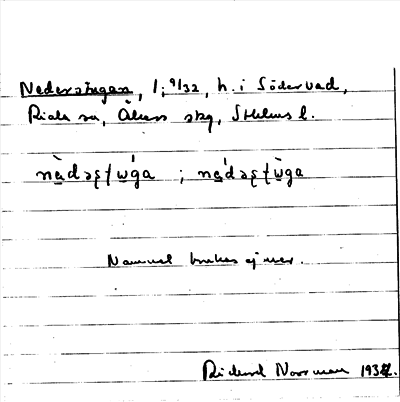 Nederstugan, 1; 9/32, h. i Södervad,
Riala sn, Åkers skg, Sthlms l.
Namnet brukas ej mer.
Rickard Norrman 1932.